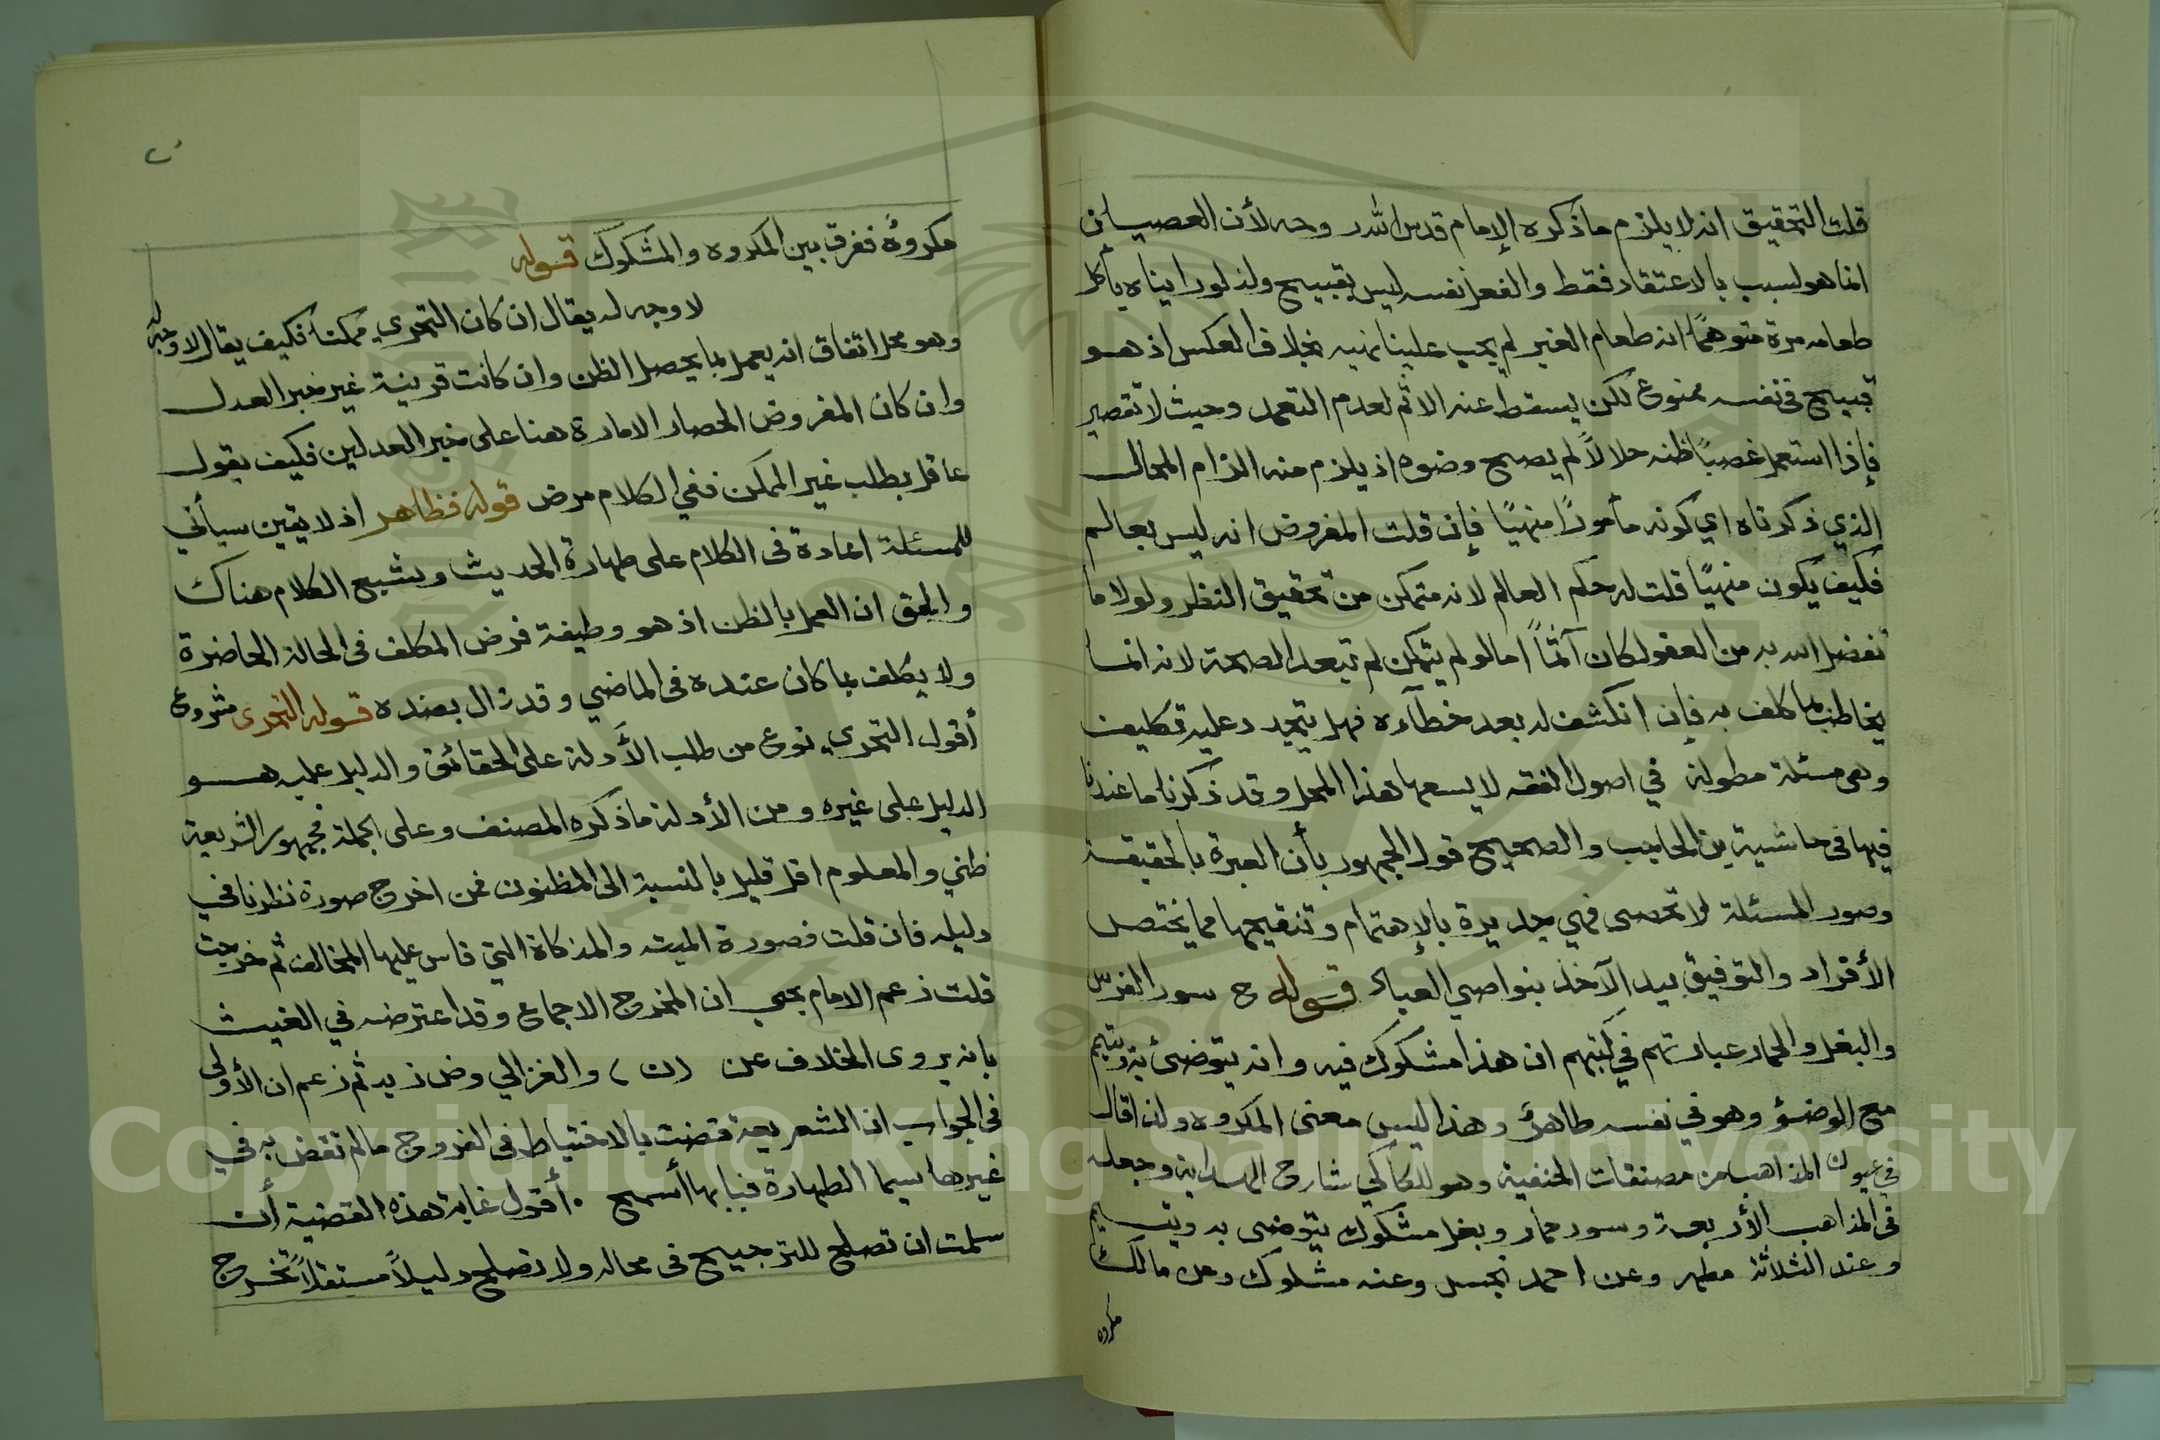 قلت التحقيق انه لا يلزم ما ذكره الإمام قدس الله روحه لأن العصيان
انما هو لسبب بالاعتقاد فقط والفعل نفسه ليس بقبيح ولذ لو راينا من يأكل
طعامه مرة متوهمًا انه طعام الغير لم يجب علينا نهيه بخلاف العكس اذ هو
قبيح في نفسه ممنوع لكن يسقط عنه الاثم لعدم التعمد وحيث لا تقصير
فإذا استعمل غصبًا ظنه حلالاً لم يصح وضوه اذ يلزم منه الزام المحال
الذي ذكرناه اي كونه مأمورًا منهيًا فإن قلت المفروض انه ليس بعالم
فكيف يكون منهيًا قلت له حكم العالم لانه متمكن من تحقيق النظر ولولا ما
تفضل الله به من العفو لكان آثمًا امالو لم يتمكن لم تبعد الصحة لانه انما
يخاطب بما كلف به فإن انكشف له بعد خطآءه فهل يتجدد عليه تكليف
وهى مسئلة مطولة في اصول الفقه لا يسعها هذا المحل وقد ذكرنا ما عندنا
فيها في حاشية بن الحاجب والصحيح قول الجمهور بأن العبرة بالحقيقة
وصور المسئلة لا تحصى فهي جديرة بالإهتمام وتنقيحها مما يختص
الأفراد والتوفيق بيد الآخذ بنواصي العباد قوله ح سور الفرس
والبغل والحمار عبارتهم في كتبهم ان هذا مشكوك فيه وانه يتوضئ به ويتيمم
مع الوضؤ وهو في نفسه طاهرٌ وهذا ليس معنى المكروه ولذا قال
في عيون المذاهب من مصنفات الحنفية وهو للكاكي شارح الهداية وجعله
في المذاهب الأربعة وسور حمار وبغل مشكوك يتوضى به ويتيمم
وعند الثلاثة مطهر وعن احمد نجس وعنه مشكوك وعن مالك
مكروه
مكروهٌ ففرق بين المكروه والمشكوك قوله
لا وجه له يقال ان كان التحري ممكنًا فكيف يقال لا وجه له
وهو محل اتفاق انه يعمل بما يحصل الظن وان كانت قرينة غير خبر العدل
وان كان المفروض انحصار الامارة هنا على خبر العدلين فكيف يقول
عاقل بطلب غير الممكن ففي الكلام مرض قوله فظاهر اذ لا يقين سيأتي
للمسئلة اعادة في الكلام على طهارة الحديث ونشبع الكلام هناك
والحق ان العمل بالظن اذ هو وظيفة فرض المكلف في الحالة الحاضرة
ولا يكلف بما كان عنده في الماضي وقد زال بضده قوله التحرى مشروع
أقول التحري نوع من طلب الأدلة على الحقائق والدليل عليه هو
الدليل على غيره ومن الأدلة ما ذكره المصنف وعلى الجملة فجمهور الشريعة
ظني والمعلوم اقل قليل بالنسبة الى المظنون فمن اخرج صورة نظرنا في
دليله فان قلت فصورة الميتة والمذكاة التي قاس عليها المخالف ثم خرجت
قلت زعم الامام يحيي ان المخرج الاجماع وقد اعترضه في الغيث
بانه يروى الخلاف عن (ن) والغزالي وض زيد ثم زعم ان الأولى
في الجواب ان الشريعة قضت بالاحتياط في الفروج مالم تقض به في
غيرها سيما الطهارة فبابها أسمح . أقول غاية هذه القضية أن
سلمت ان تصلح للترجيح في محاله ولا تصلح دليلاً مستقلاً تخرج